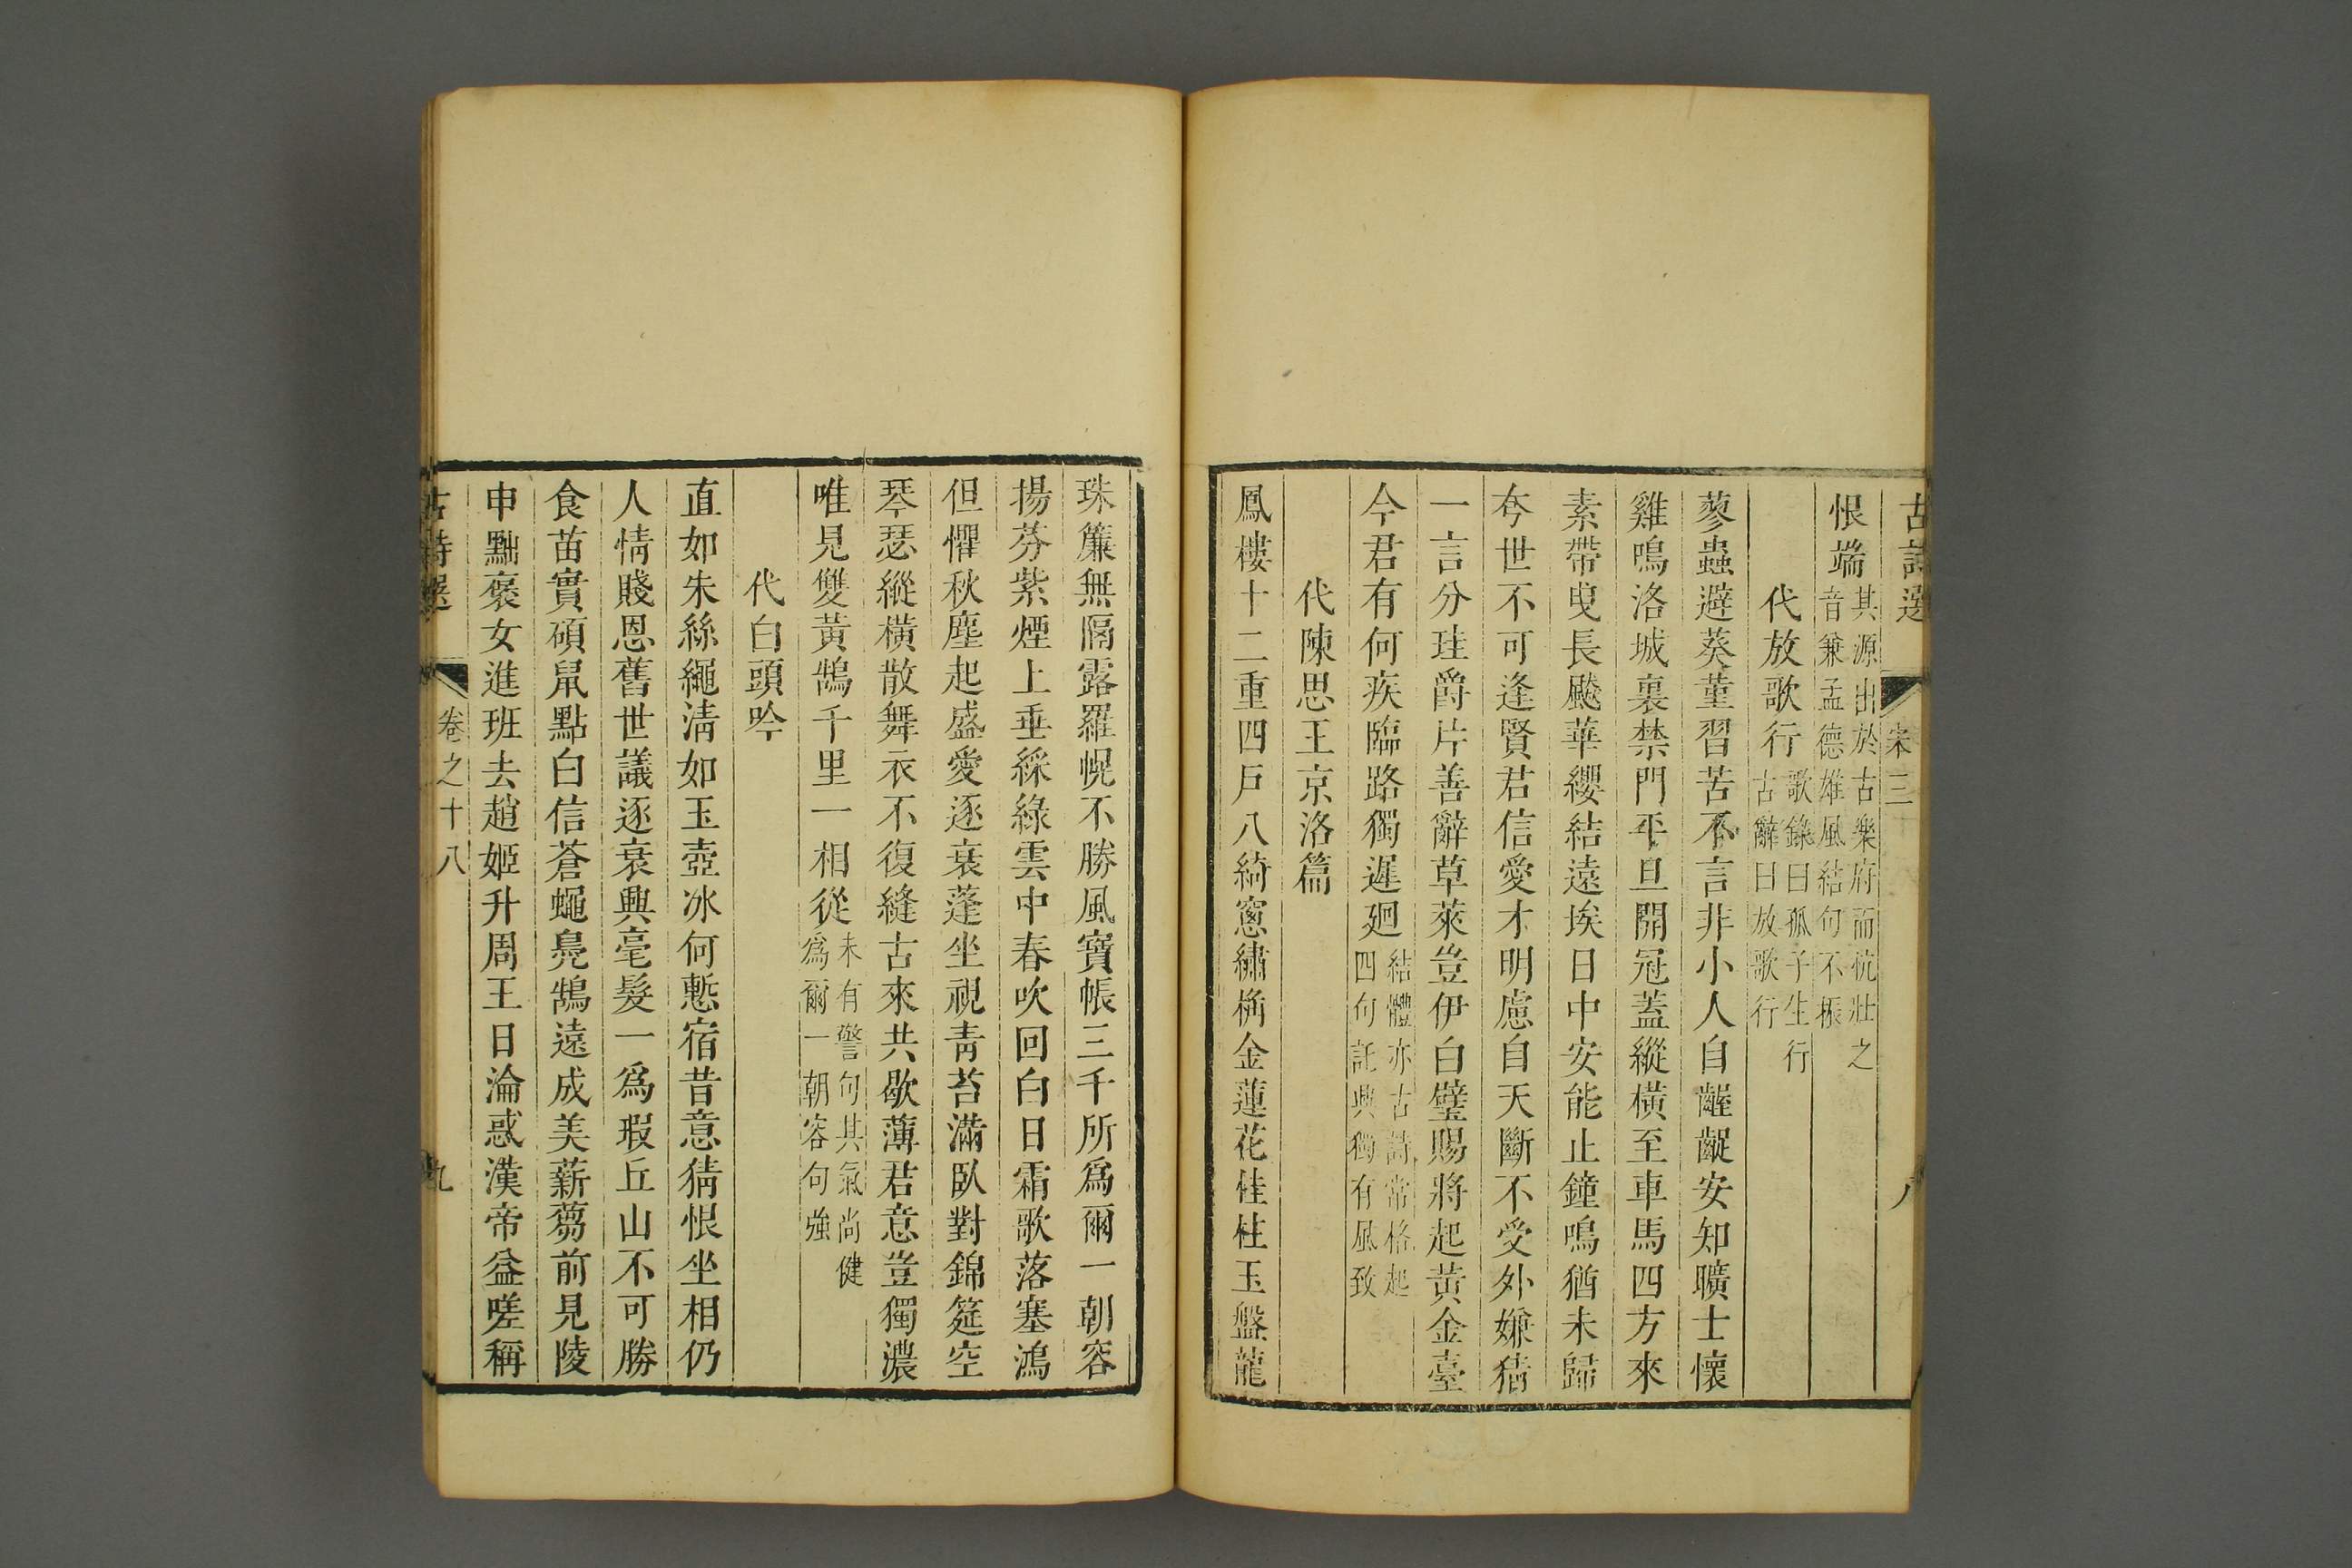 古詩選 宋三 八
恨端其源出於古樂府而杭壯之
音兼孟德雄風結句不振
代放歌行歌錄曰孤子生行
古辭曰放歌行
蓼蟲避葵菫習苦不言非小人自齷齪安知曠士懷
雞鳴洛城裏禁門平旦開冠蓋縱橫至車馬四方來
素帶曳長飇華纓結遠埃日中安能止鐘鳴猶未歸
夸世不可逢賢君信愛才明慮自天斷不受外嫌猜
一言分珪爵片善辭草萊豈伊白璧賜將起黃金臺
今君有何疾臨路獨遲廻結體亦古詩常格起
四句託興獨有風致
代陳思王京洛篇
鳳樓十二重四戶八綺窻繡桷金蓮花桂柱玉盤龍
珠簾無隔露羅幌不勝風寶帳三千所爲爾一朝容
揚芬紫煙上垂綵綠雲中春吹回白日霜歌落塞鴻
但懼秋塵起盛愛逐衰蓬坐視靑苔滿臥對錦筵空
琴瑟縱橫散舞衣不復縫古來共歇薄君意豈獨濃
唯見雙黃鵠千里一相從未有警句其氣尚健
爲爾一朝容句強
代白頭吟
直如朱絲繩淸如玉壺冰何慙宿昔意猜恨坐相仍
人情賤恩舊世議逐衰興毫髮一爲瑕丘山不可勝
食苗實碩鼠點白信蒼蠅鳧鵠遠成美薪芻前見陵
申黜褒女進班去趙姬升周王日淪惑漢帝益嗟稱
古詩選 卷之十八 九